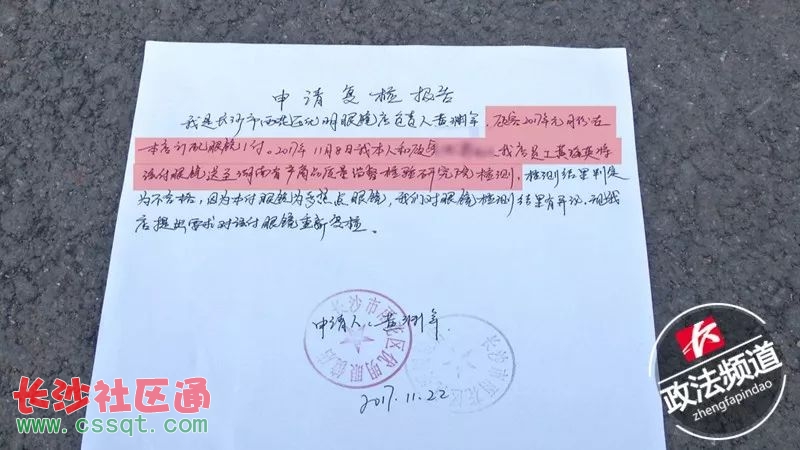 申请复检报告
我是长沙市雨花区悦明眼镜店负责人黄湘年，顾客2017年元月份在
本店订配眼镜1付。2017年11月8日我本人和顾客 我店员工黄
该付眼镜送至湖南省产商品质量监督检验研究院检测，检测结果判定
为不合格，因为本付眼镜为多焦点眼镜，我们对眼镜检测结果有异议，现我
店提出要求对该付眼镜重新复检。
长沙市雨花区 明眼镜店
申请人：黄湘年
长沙市雨花区
2017.11.22
长沙社区通
www.cssqt.com
政法频道
zhengfapindao